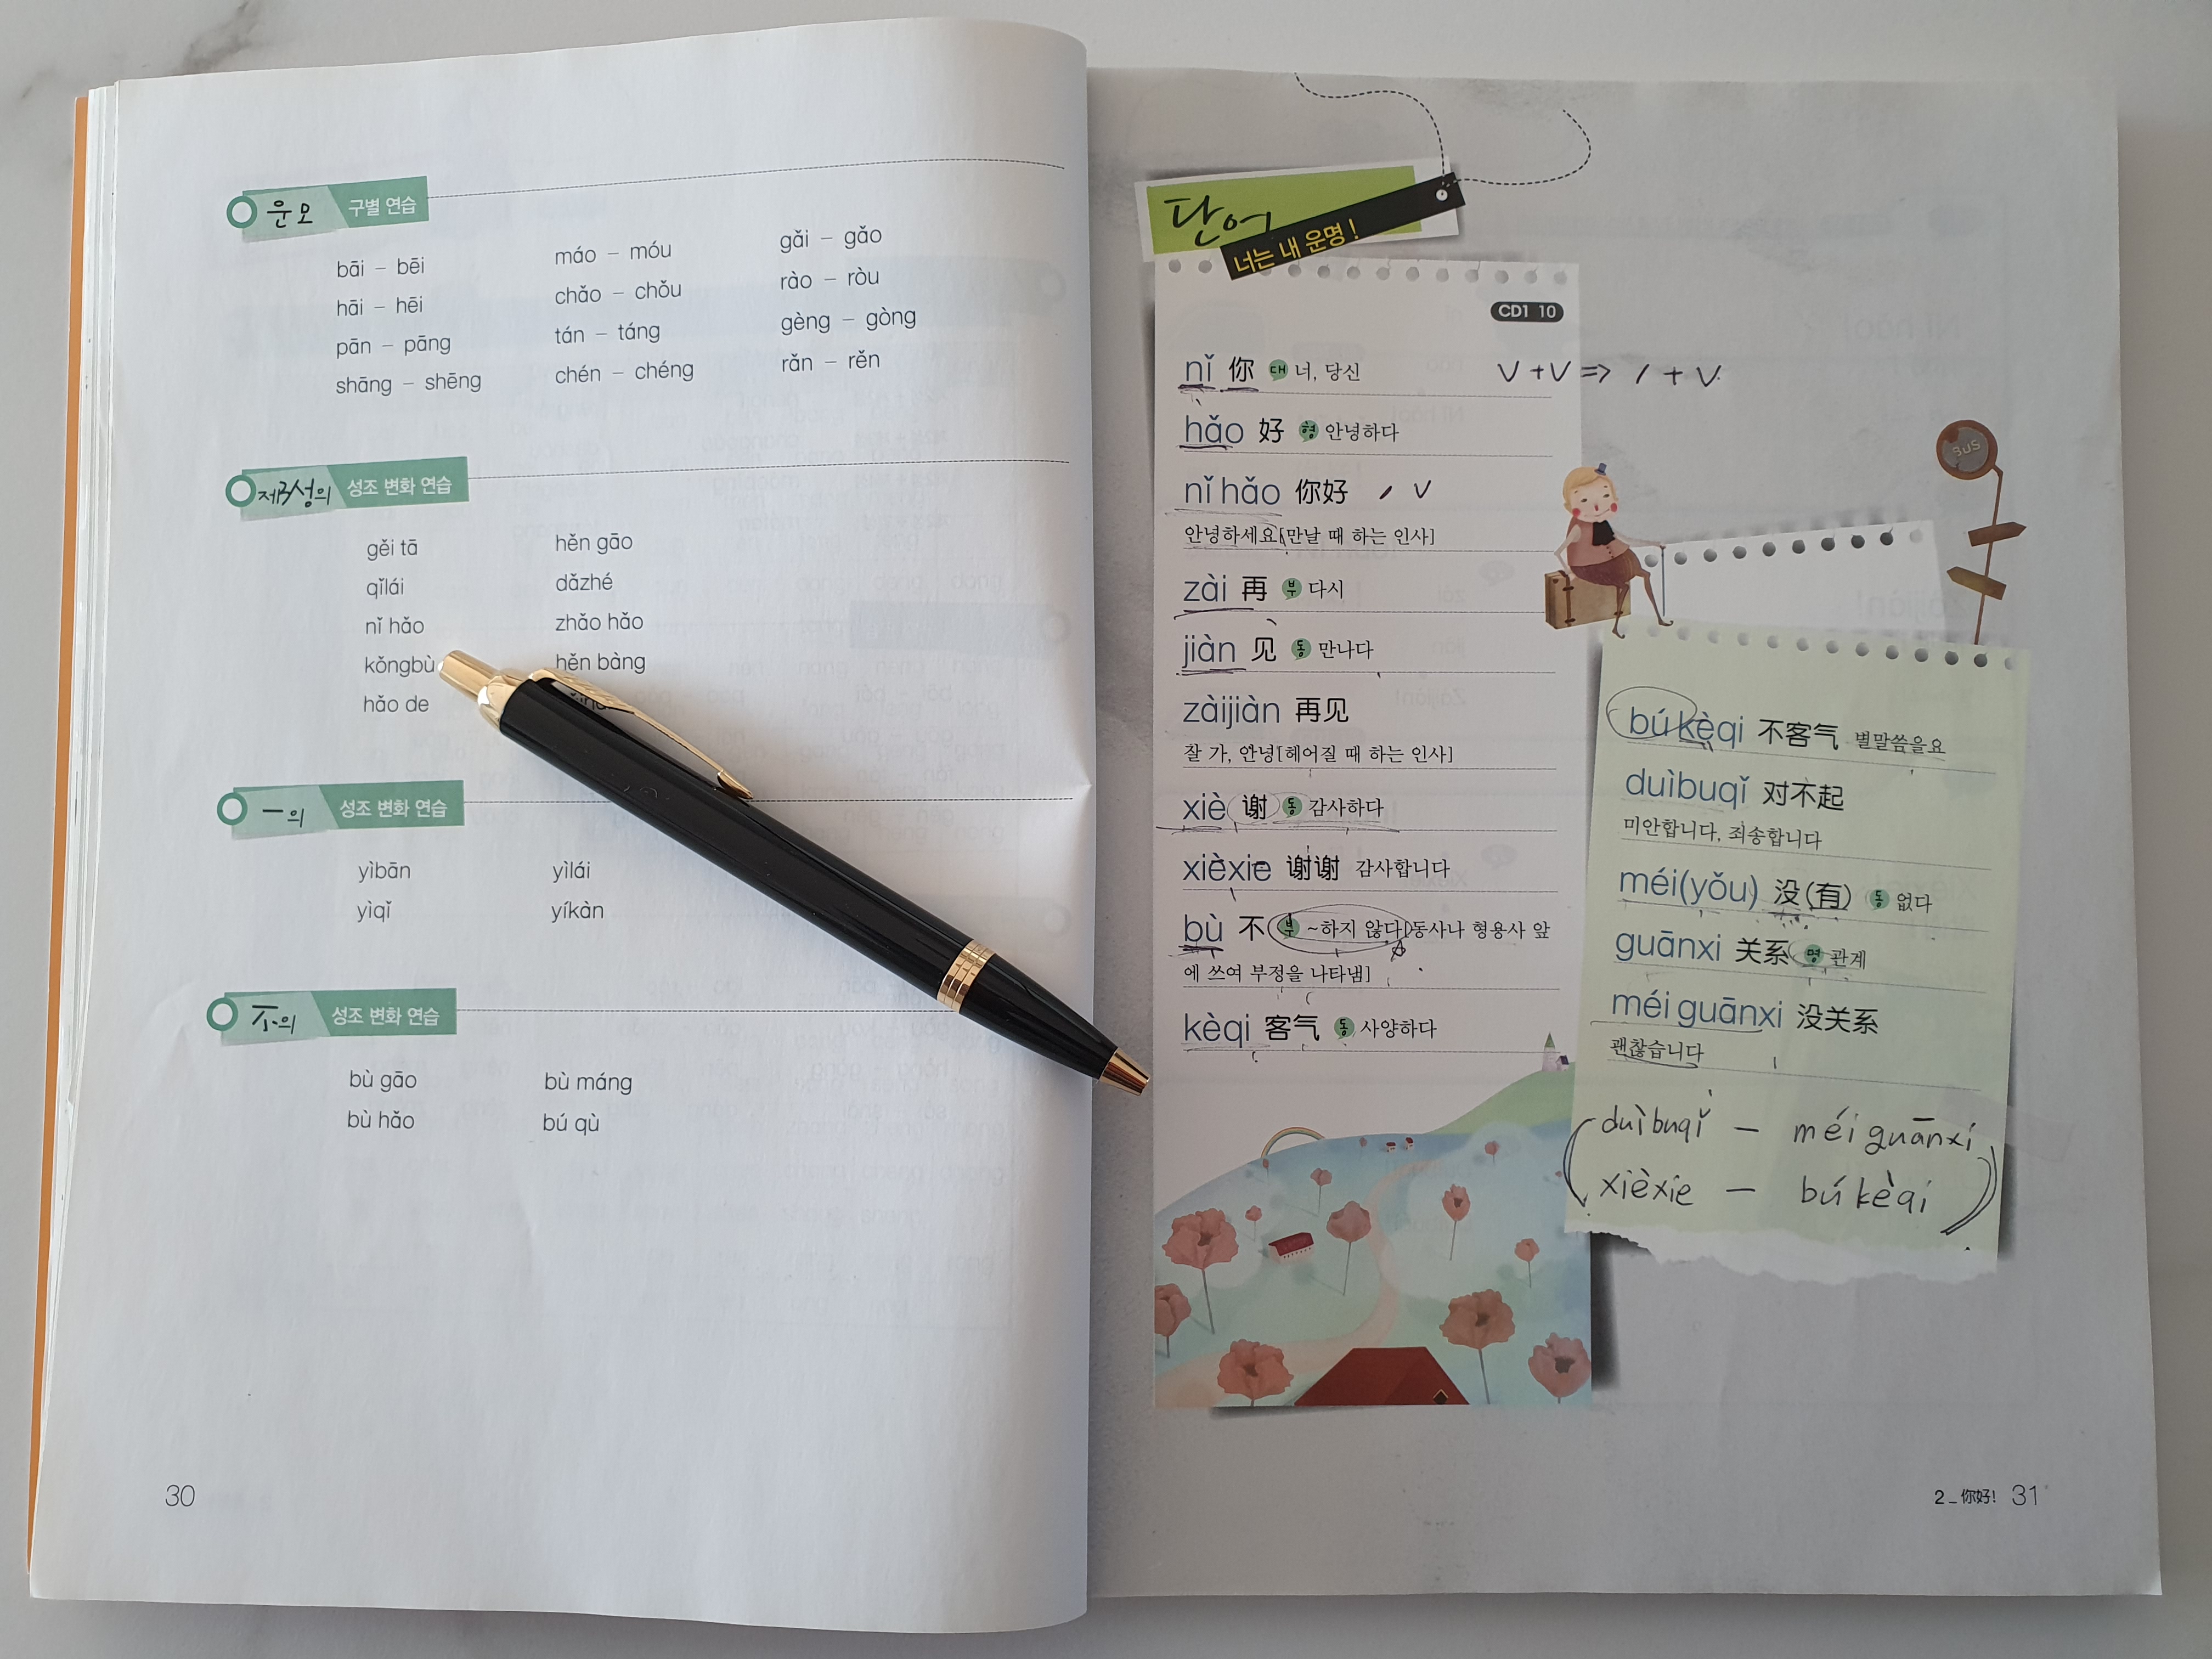 운모 구별 연습
bāi – bēi
hāi – hēi
pān – pāng
shāng – shēng
máo – móu
chǎo – chǒu
tán – táng
chén – chéng
gǎi – gǎo
rào – ròu
gèng – gòng
rǎn – rěn
제3성의 성조 변화 연습
gěi tā
qǐlái
nǐ hǎo
kǒngbù
hǎo de
hěn gāo
dǎzhé
zhǎo hǎo
hěn bàng
一의 성조 변화 연습
yìbān
yìqǐ
yìlái
yíkàn
不의 성조 변화 연습
bù gāo
bù hǎo
bù máng
bú qù
30
단어
너는 내 운명!
CD1 10
nǐ 你 대 너, 당신 V + V => / + V
hǎo 好 형 안녕하다
nǐ hǎo 你好 / V
안녕하세요[만날 때 하는 인사]
zài 再 부 다시
jiàn 见 동 만나다
zàijiàn 再见
잘 가, 안녕[헤어질 때 하는 인사]
xiè 谢 동 감사하다
xièxie 谢谢 감사합니다
bù 不 부 ~하지 않다[동사나 형용사 앞
에 쓰여 부정을 나타냄]
kèqi 客气 동 사양하다
BUS
bú kèqi 不客气 별말씀을요
duìbuqǐ 对不起
미안합니다, 죄송합니다
méi(yǒu) 没(有) 동 없다
guānxi 关系 명 관계
méi guānxi 没关系
괜찮습니다
duìbuqǐ – méi guānxi
xièxie – bú kèqi
2_你好! 31